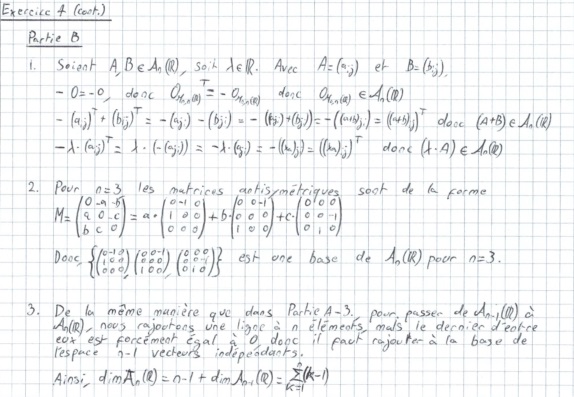 Exercice 4 (cont.)
Partie B
1. Soient A, B ∈ An(ℝ), soit λ ∈ ℝ. Avec A = (aij) et B = (bij),
- 0 = -0, donc O_{Mn,n(ℝ)}^T = -O_{Mn,n(ℝ)} donc O_{Mn,n(ℝ)} ∈ An(ℝ)
- (aij)^T + (bij)^T = -(aij) - (bij) = -((aij) + (bij)) = -((a+b)ij) = ((a+b)ij)^T donc (A+B) ∈ An(ℝ)
- λ·(aij)^T = λ·(-(aij)) = -λ·(aij) = -((λa)ij) = ((λa)ij)^T donc (λ·A) ∈ An(ℝ)
2. Pour n=3, les matrices antisymétriques sont de la forme
M = (0 -a -b; a 0 -c; b c 0) = a·(0 -1 0; 1 0 0; 0 0 0) + b·(0 0 -1; 0 0 0; 1 0 0) + c·(0 0 0; 0 0 -1; 0 1 0)
Donc, {(0 -1 0; 1 0 0; 0 0 0), (0 0 -1; 0 0 0; 1 0 0), (0 0 0; 0 0 -1; 0 1 0)} est une base de An(ℝ) pour n=3.
3. De la même manière que dans Partie A-3, pour passer de An-1(ℝ) à
An(ℝ), nous rajoutons une ligne à n éléments, mais le dernier d'entre
eux est forcément égal à 0, donc il faut rajouter à la base de
l'espace n-1 vecteurs indépendants.
Ainsi, dim An(ℝ) = n-1 + dim An-1(ℝ) = Σ_{k=1}^{n} (k-1)